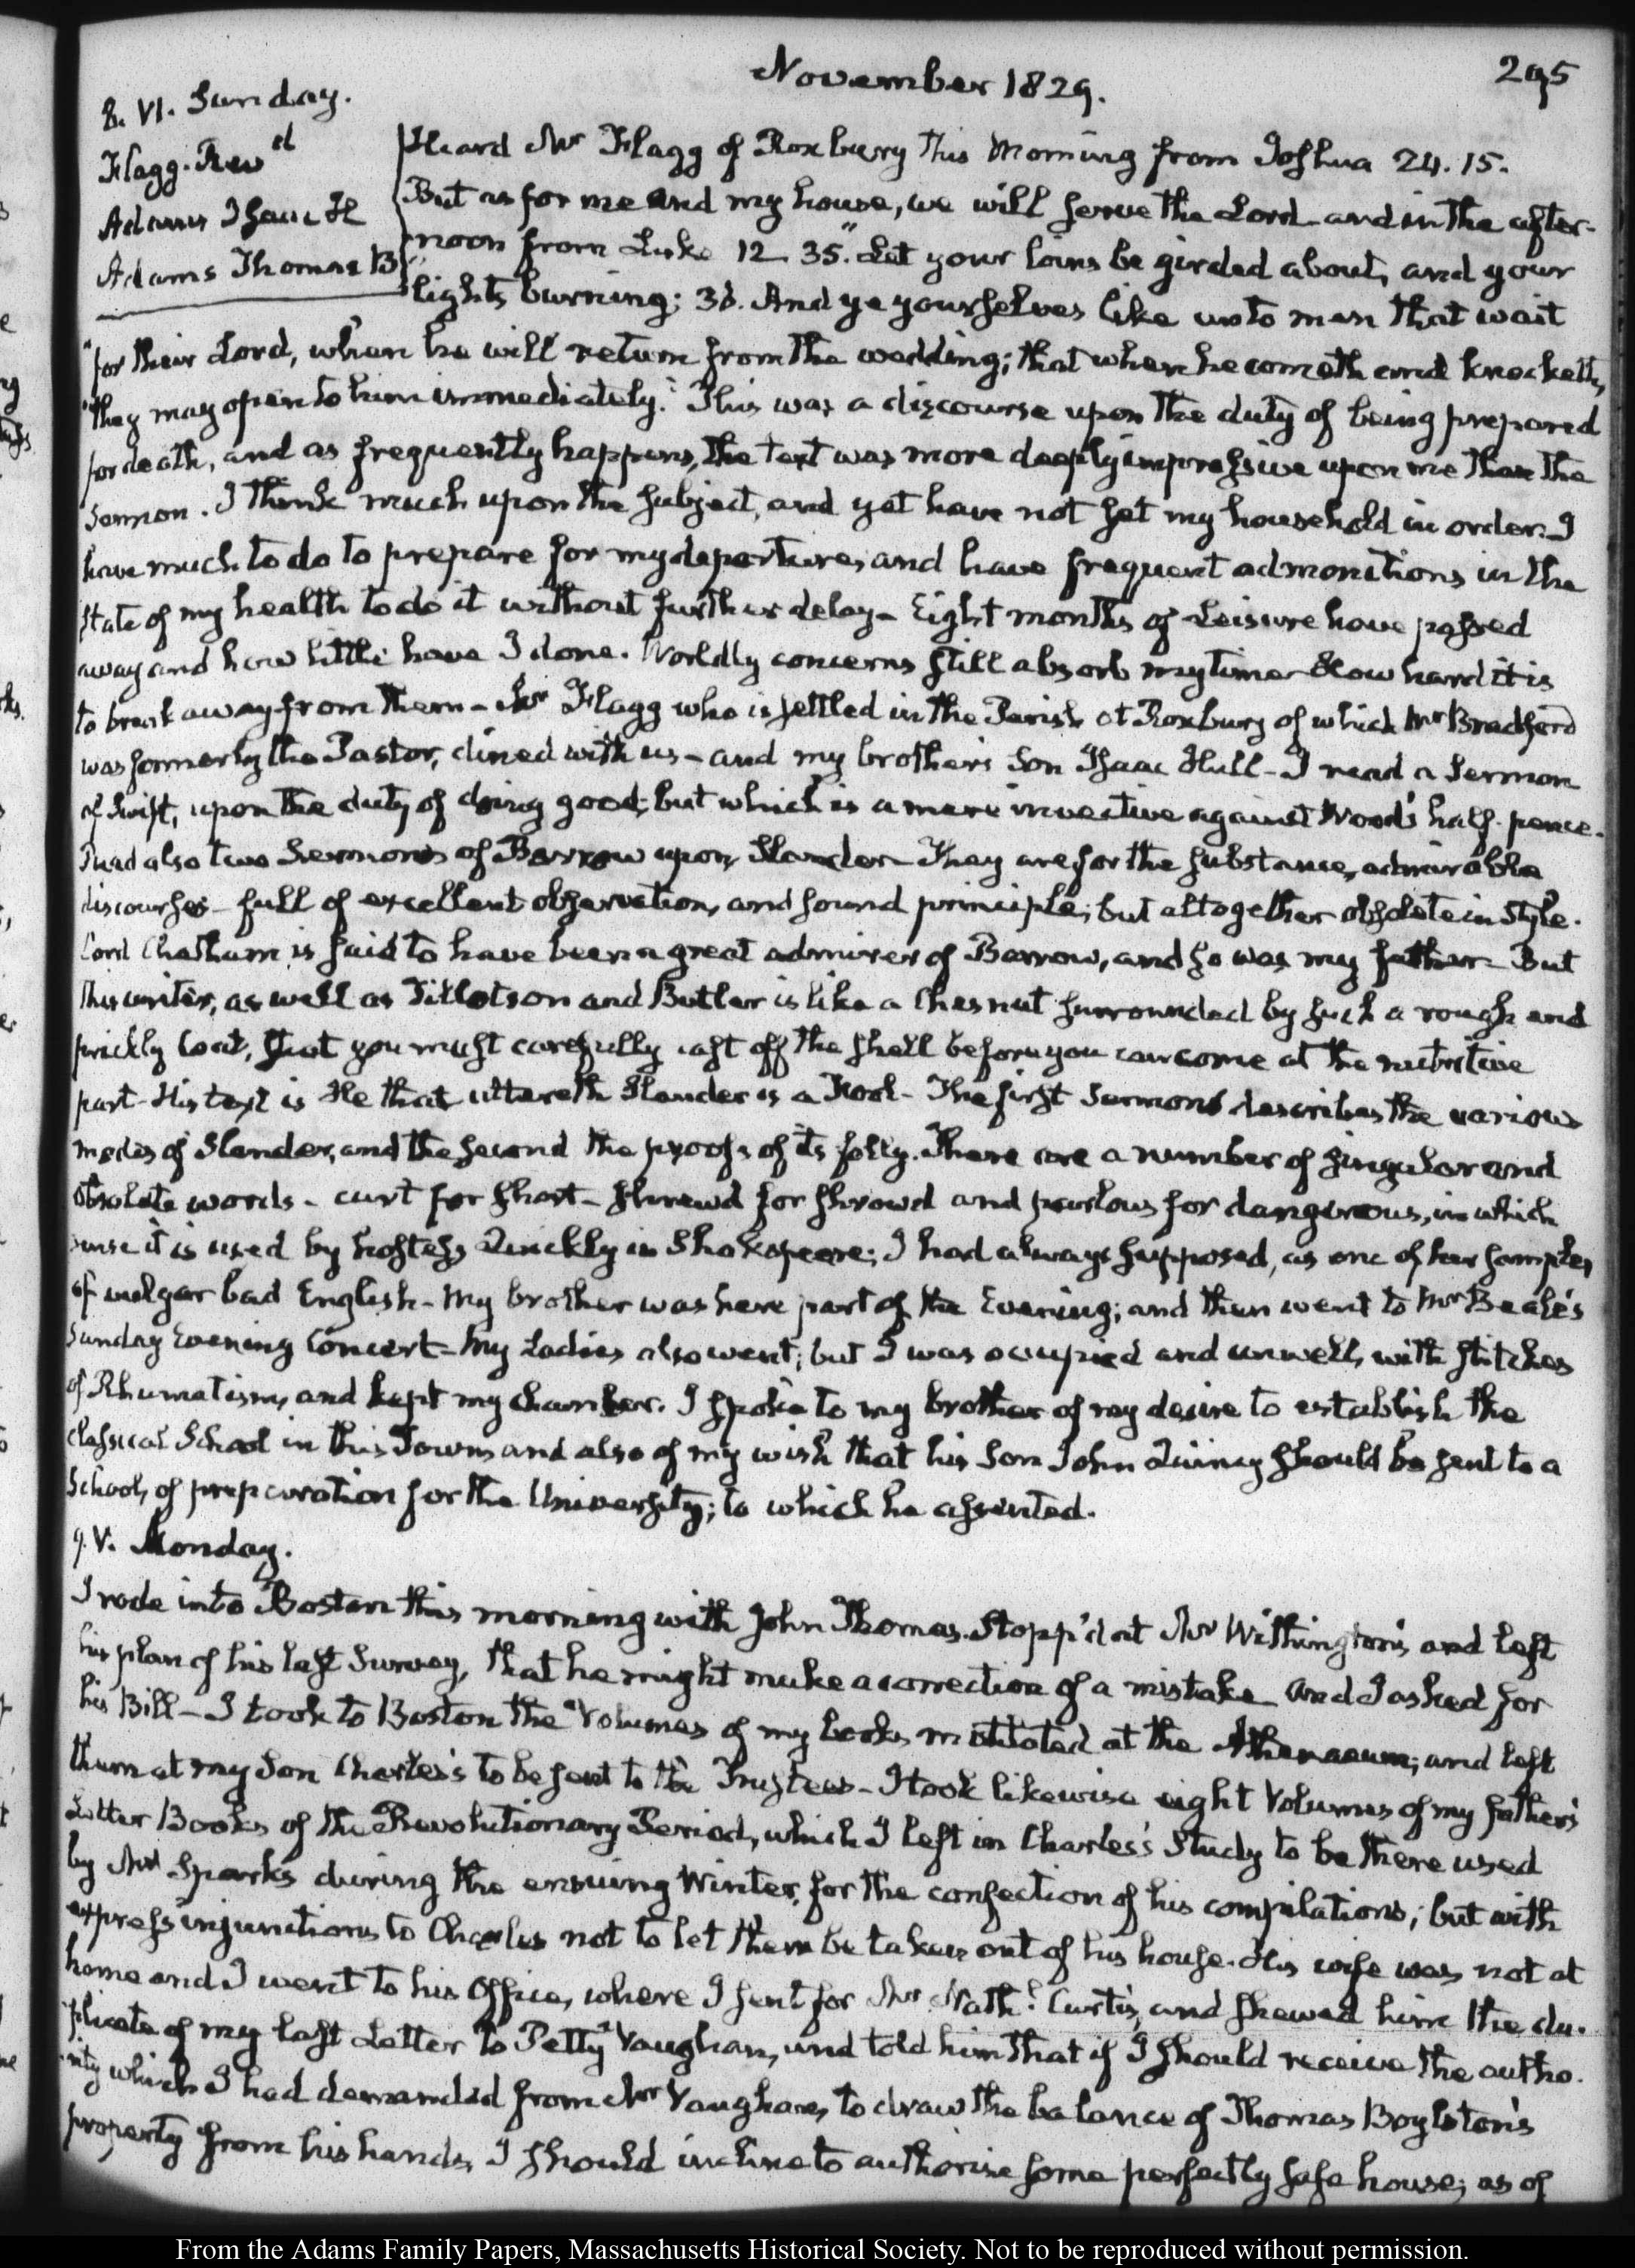 November 1829.
295
8. VI. Sunday.
Flagg. Rev.d
Adams Isaac H
Adams Thomas B
Heard Mr Flagg of Roxbury this Morning from Joshua 24. 15.
But as for me and my house, we will serve the Lord and in the after-
noon from Luke 12. 35. "Let your loins be girded about, and your
"lights burning; 36. And ye yourselves like unto men that wait
"for their Lord, when he will return from the wedding; that when he cometh and knocketh,
"they may open to him immediately." This was a discourse upon the duty of being prepared
for death, and as frequently happens, the text was more deeply impressive upon me than the
Sermon. I think much upon the subject, and yet have not set my household in order. I
have much to do to prepare for my departure, and have frequent admonitions in the
state of my health to do it without further delay— Eight months of Leisure have passed
away and how little have I done. Worldly concerns still absorb my time— How hard it is
to break away from them— Mr Flagg who is settled in the Parish at Roxbury of which Mr Bradford
was formerly the Pastor, dined with us— and my brother's Son Isaac Hull— I read a Sermon
of Swift, upon the duty of doing good; but which is a mere invective against Wood's half-pence.
I read also two Sermons of Barrow upon Slander— They are for the substance, admirable
discourses— full of excellent observation, and sound principle; but altogether obsolete in Style.
Lord Chatham is said to have been a great admirer of Barrow, and so was my father— But
this writer, as well as Tillotson and Butler is like a Chesnut surrounded by such a rough and
prickly coat, that you must carefully cast off the shell before you can come at the nutritive
part— His text is He that uttereth Slander is a Fool— The first Sermons describes the various
modes of Slander, and the second the proofs of its folly. There are a number of singular and
obsolete words— curt for short— shrewd for shrowd and parlous for dangerous, in which
sense it is used by hostess Quickly in Shakspeare; I had always supposed, as one of her samples
of vulgar bad English— My brother was here part of the Evening; and then went to Mr Beale's
Sunday Evening Concert— My Ladies also went; but I was occupied and unwell, with stitches
of Rhumatism, and kept my chamber. I spoke to my brother of my desire to establish the
Classical School in this Town, and also of my wish that his Son John Quincy should be sent to a
School, of preparation for the University; to which he assented.
9. V. Monday.
I rode into Boston this morning with John Thomas. Stopp'd at Mr Withington's and left
his plan of his last Survey, that he might make a correction of a mistake— And I asked for
his Bill— I took to Boston the Volumes of my books mutilated at the Athenaeum; and left
them at my Son Charles's to be sent to the Trustees— I took likewise eight Volumes of my father's
Letter Books of the Revolutionary Period, which I left in Charles's Study to be there used
by Mr Sparks during the ensuing Winter, for the confection of his compilations; but with
express injunctions to Charles not to let them be taken out of his house. His wife was not at
home and I went to his Office, where I sent for Mr Nath.l Curtis, and shewed him the du-
plicate of my last Letter to Petty Vaughan, and told him that if I should receive the autho-
rity which I had demanded from Mr Vaughan, to draw the balance of Thomas Boylston's
property from his hands, I should incline to authorise some perfectly safe house, as of
From the Adams Family Papers, Massachusetts Historical Society. Not to be reproduced without permission.